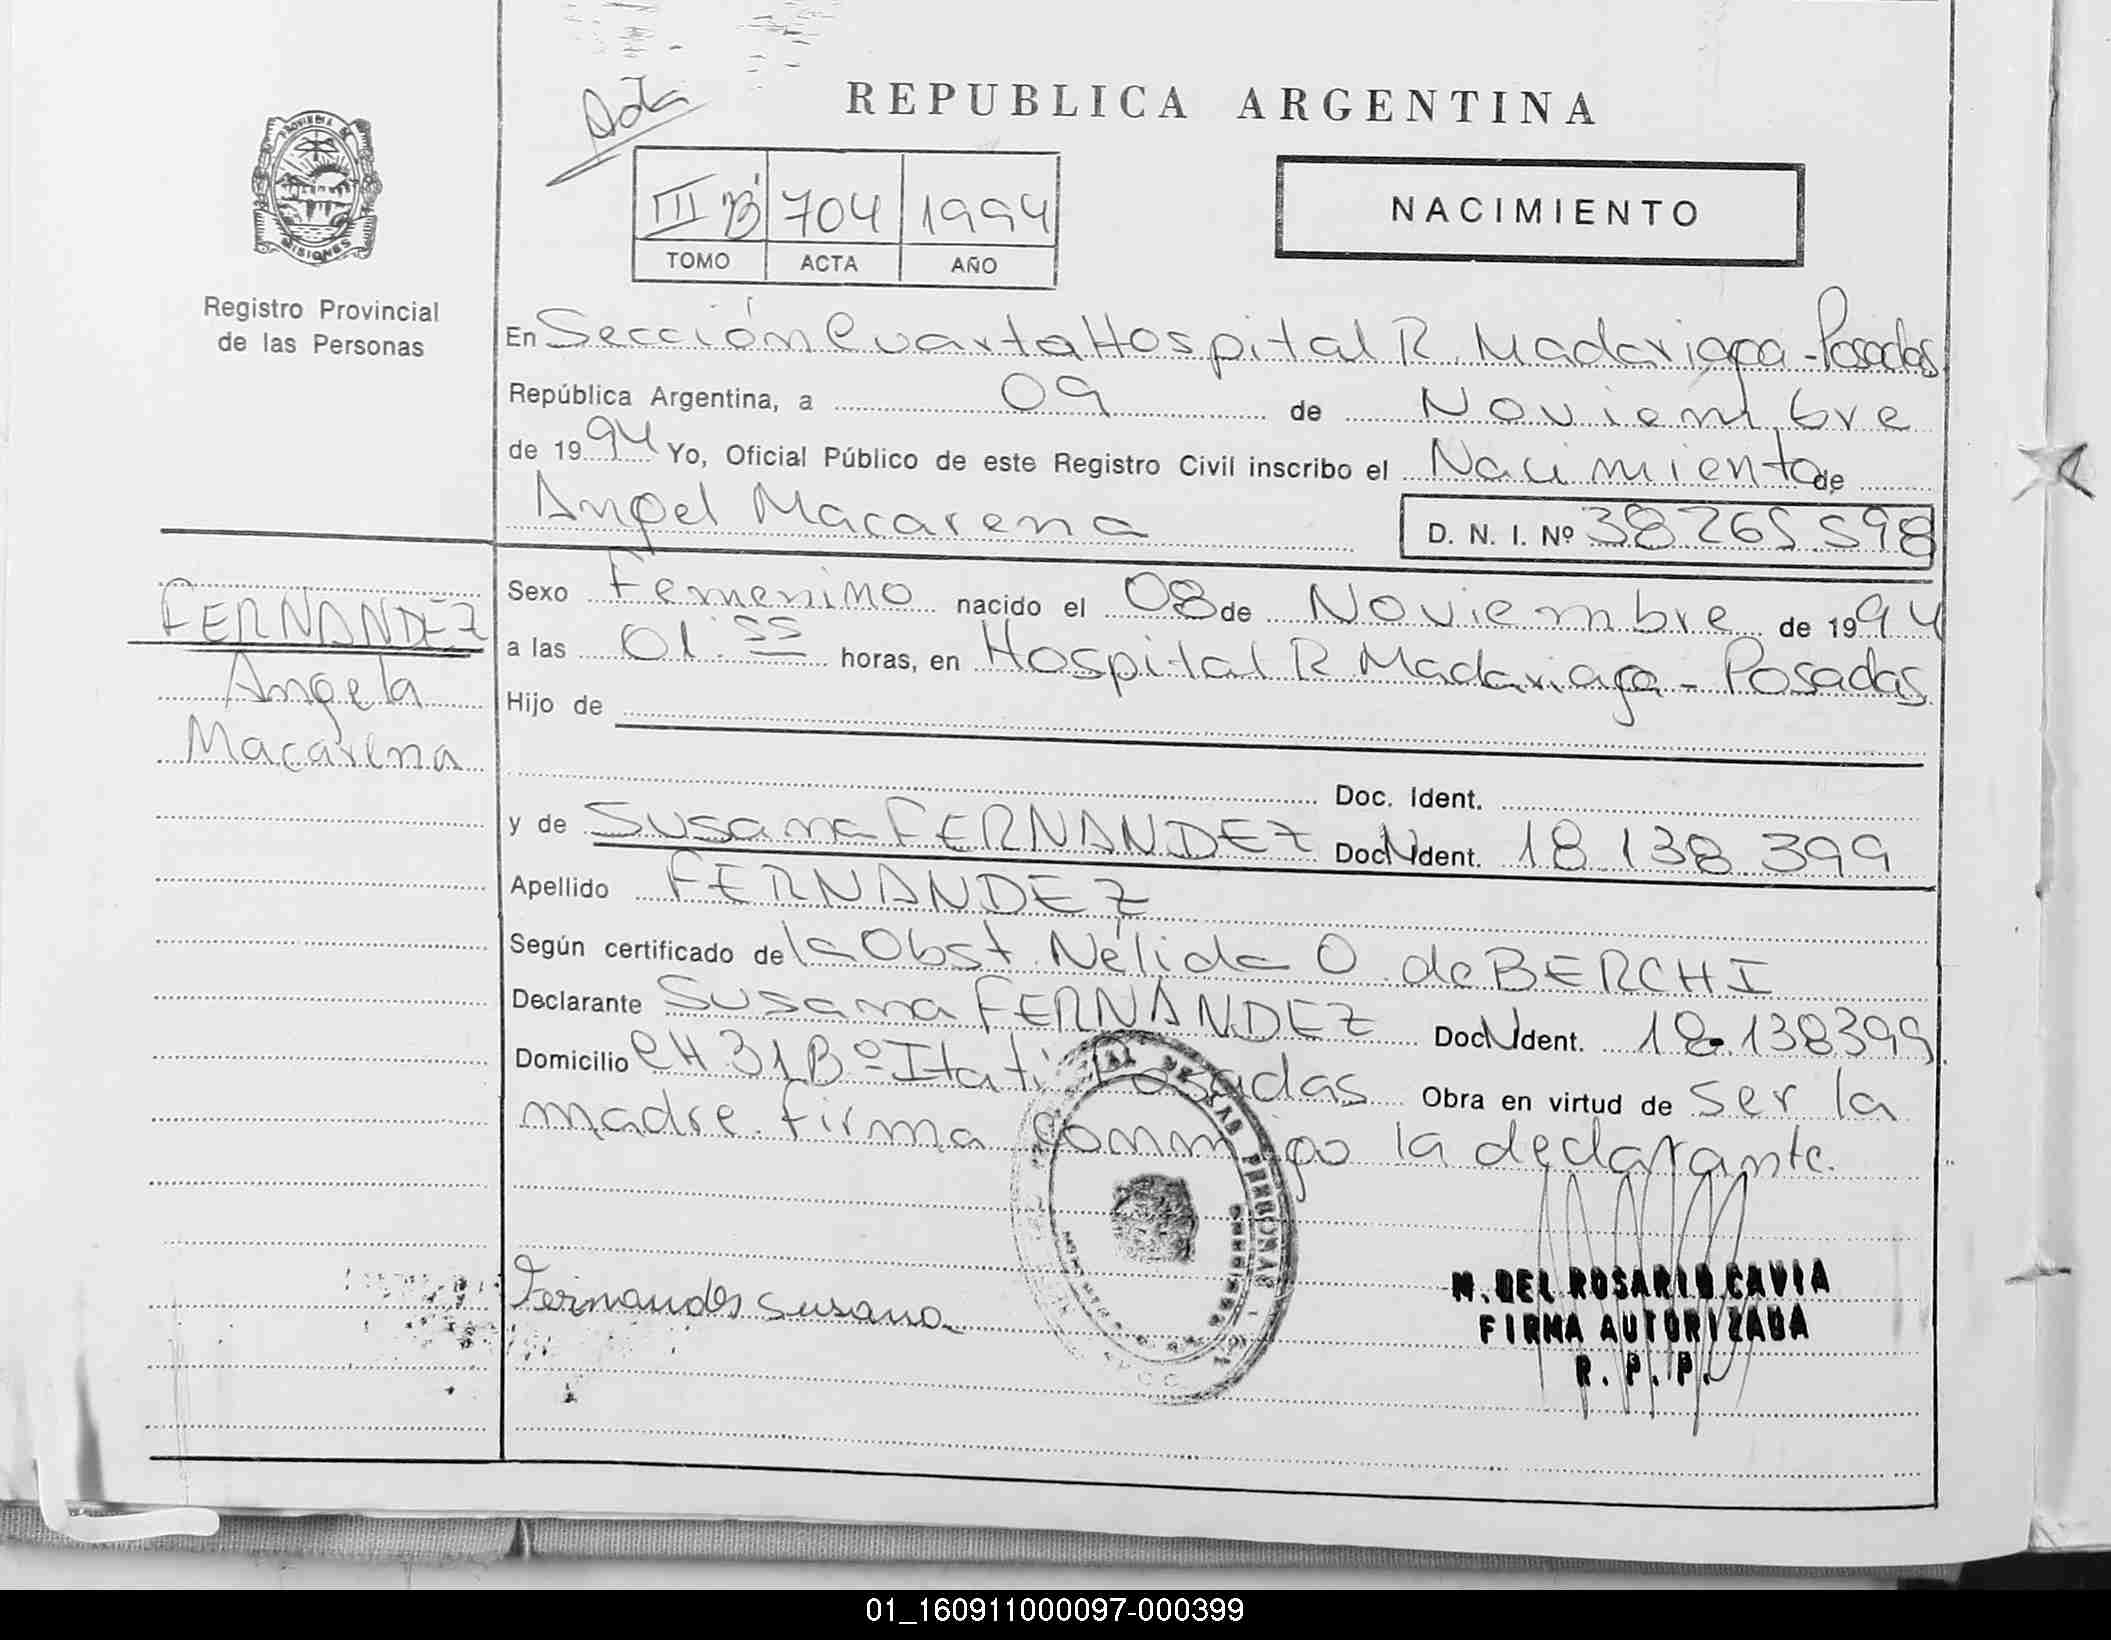 REPUBLICA ARGENTINA
PROVINCIA DE MISIONES
III B' 704 1994
TOMO ACTA AÑO
NACIMIENTO
Registro Provincial
de las Personas
En Sección Cuarta Hospital R. Madariaga - Posadas
República Argentina, a 09 de Noviembre
de 1994 Yo, Oficial Público de este Registro Civil inscribo el Nacimiento de
Angel Macarena D. N. I. Nº 38265598
FERNANDEZ
Angela
Macarena
Sexo Femenino nacido el 08 de Noviembre de 1994
a las 01:55 horas, en Hospital R Madariaga - Posadas
Hijo de
Doc. Ident.
y de Susana FERNANDEZ Doc N Ident. 18.138.399
Apellido FERNANDEZ
Según certificado de la Obst. Nélida O. de BERCHI
Declarante Susana FERNANDEZ Doc N Ident. 18.138399
Domicilio CH 31 Bº Itati Posadas Obra en virtud de ser la
madre. firma conmigo la declarante.
Fernandes Susana
M. DEL ROSARIO CAVIA
FIRMA AUTORIZADA
R. P. P.
01_160911000097-000399